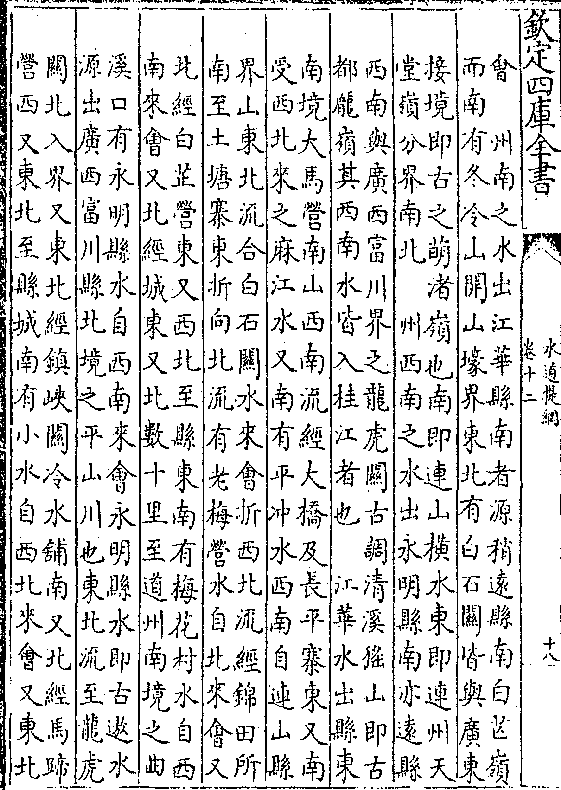 欽定四庫全書
水道提綱
卷十二
十八
會　州南之水出江華縣南者源稍遠縣南白芒嶺
而南有冬冷山開山壕界東北有白石關皆與廣東
接境即古之萌渚嶺也南即連山橫水東即連州天
堂嶺分界南北　州西南之水出永明縣南亦遠縣
西南與廣西富川界之龍虎關古調清溪猺山即古
都龐嶺其西南水皆入桂江者也　江華水出縣東
南境大馬營南山西南流經大橋及長平寨東又南
受西北來之麻江水又南有平冲水西南自連山縣
界山東北流合白石關水來會折西北流經錦田所
南至土塘寨東折向北流有老梅營水自北來會又
北經白芷營東又西北至縣東南有梅花村水自西
南來會又北經城東又北數十里至道州南境之曲
溪口有永明縣水自西南來會永明縣水即古遨水
源出廣西富川縣北境之平山川也東北流至龍虎
關北入界又東北經鎮峽關冷水舖南又北經馬蹄
營西又東北至縣城南有小水自西北來會又東北